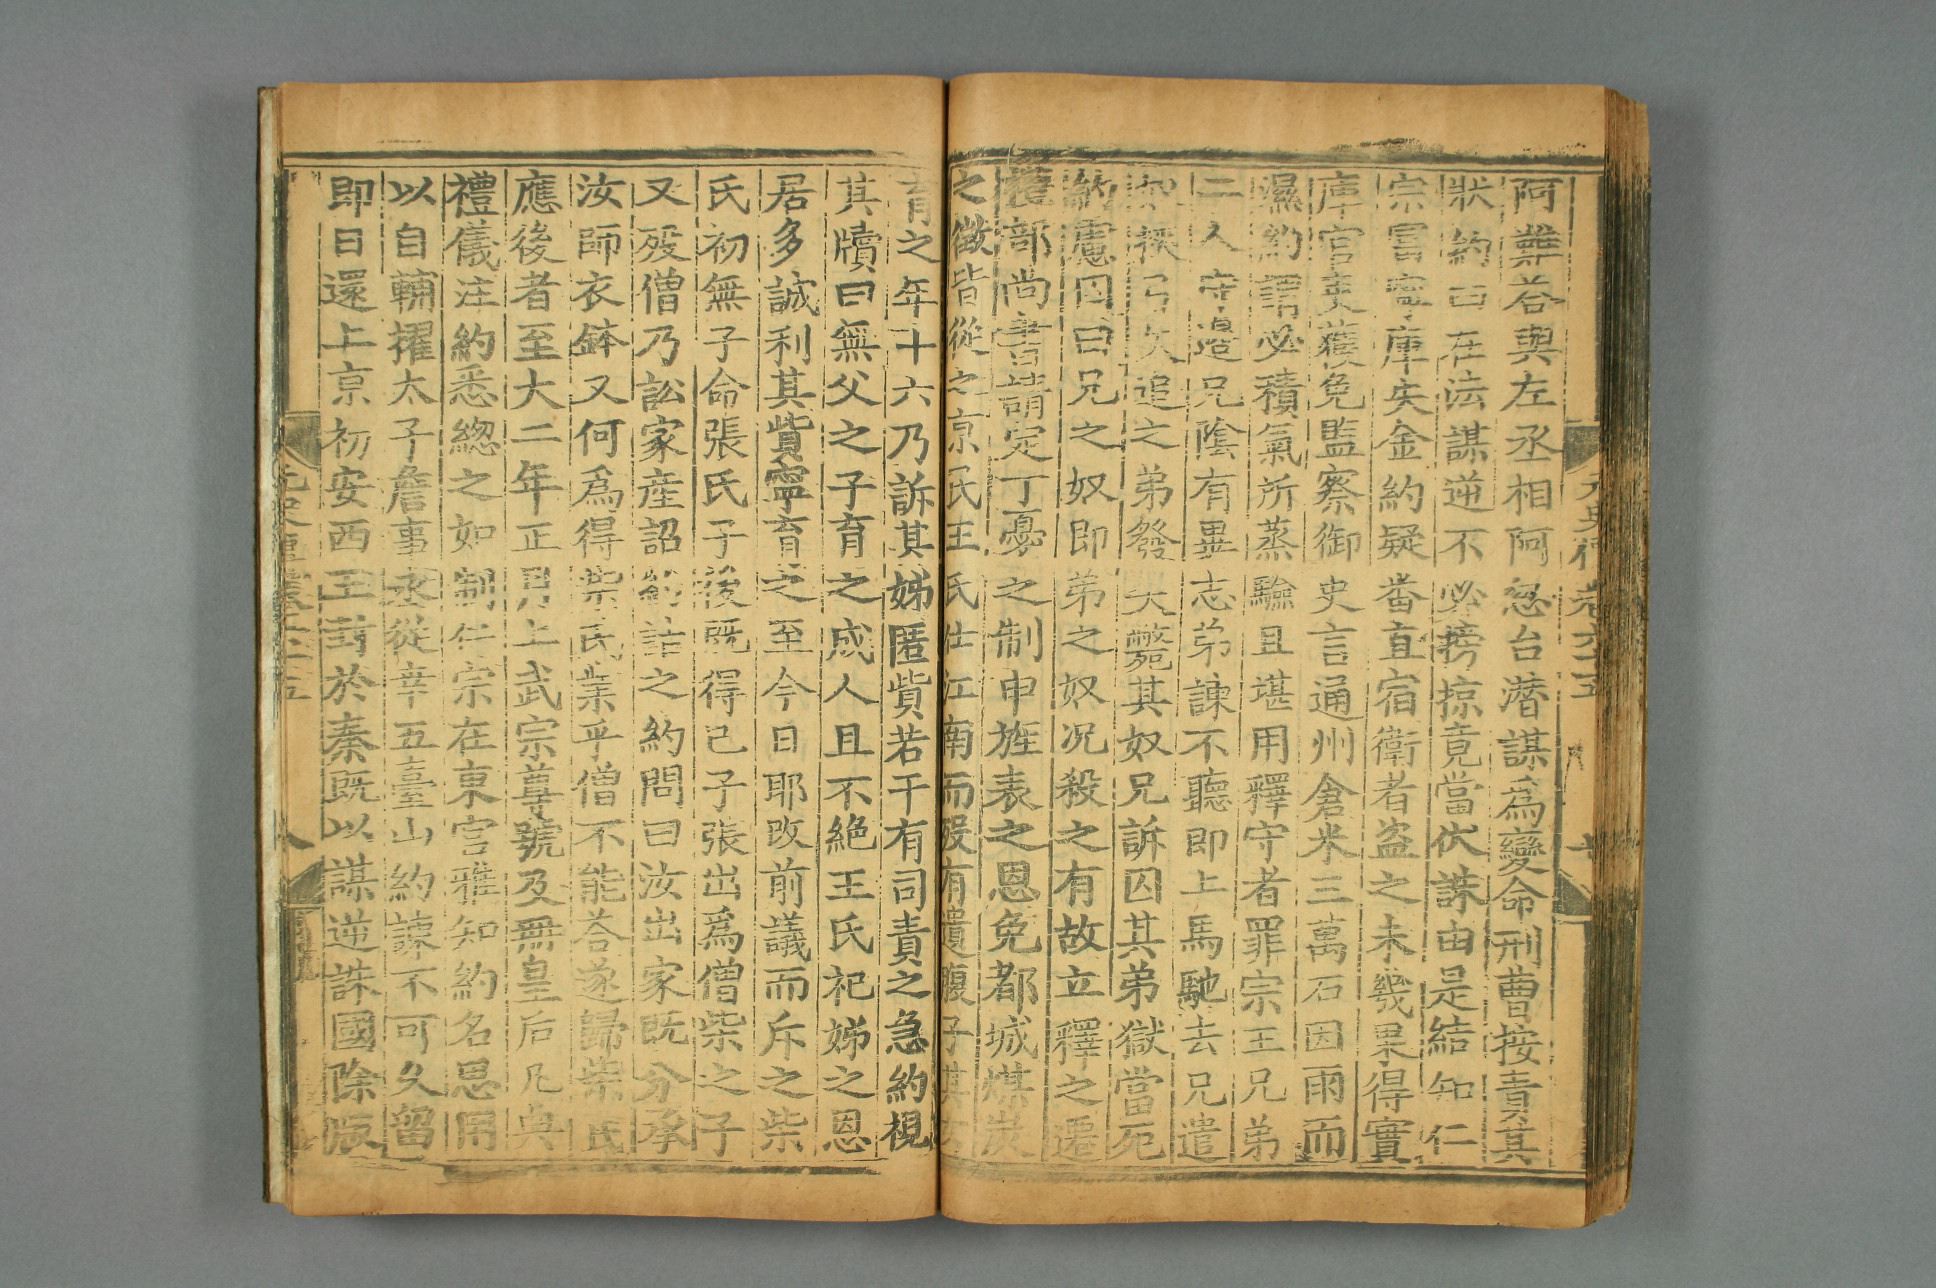 阿難答與左丞相阿忽台潛謀爲變命刑曹按責其
狀約曰在法謀逆不必搒掠竟當伏誅由是結知仁
宗宮寶庫失金約疑番直宿衛者盜之未幾果得實
庫官吏獲免監察御史言通州倉米三萬石因雨而
濕約謂必積氣所蒸驗且堪用釋守者罪宗王兄弟
二人守邊兄陰有異志弟諫不聽即上馬馳去兄遣
奴挾弓矢追之弟發矢斃其奴兄訴囚其弟獄當死
約慮囚曰兄之奴即弟之奴况殺之有故立釋之遷
禮部尚書請定丁憂之制申旌表之恩免都城煤炭
之徵皆從之京民王氏仕江南而殁有遺腹子其女
育之年十六乃訴其姊匿貲若干有司責之急約視
其牘曰無父之子育之成人且不絶王氏祀姊之恩
居多誠利其貲寧育之至今日耶改前議而斥之柴
氏初無子命張氏子後既得己子張出爲僧柴之子
又殁僧乃訟家産詔約詰之約問曰汝出家既分承
汝師衣鉢又何爲得柴氏業乎僧不能答遂歸柴氏
應後者至大二年正月上武宗尊號及無皇后凡典
禮儀注約悉緫之如制仁宗在東宮雅知約名思用
以自輔擢太子詹事丞從幸五臺山約諫不可久留
即日還上京初安西王封於秦既以謀逆誅國除版